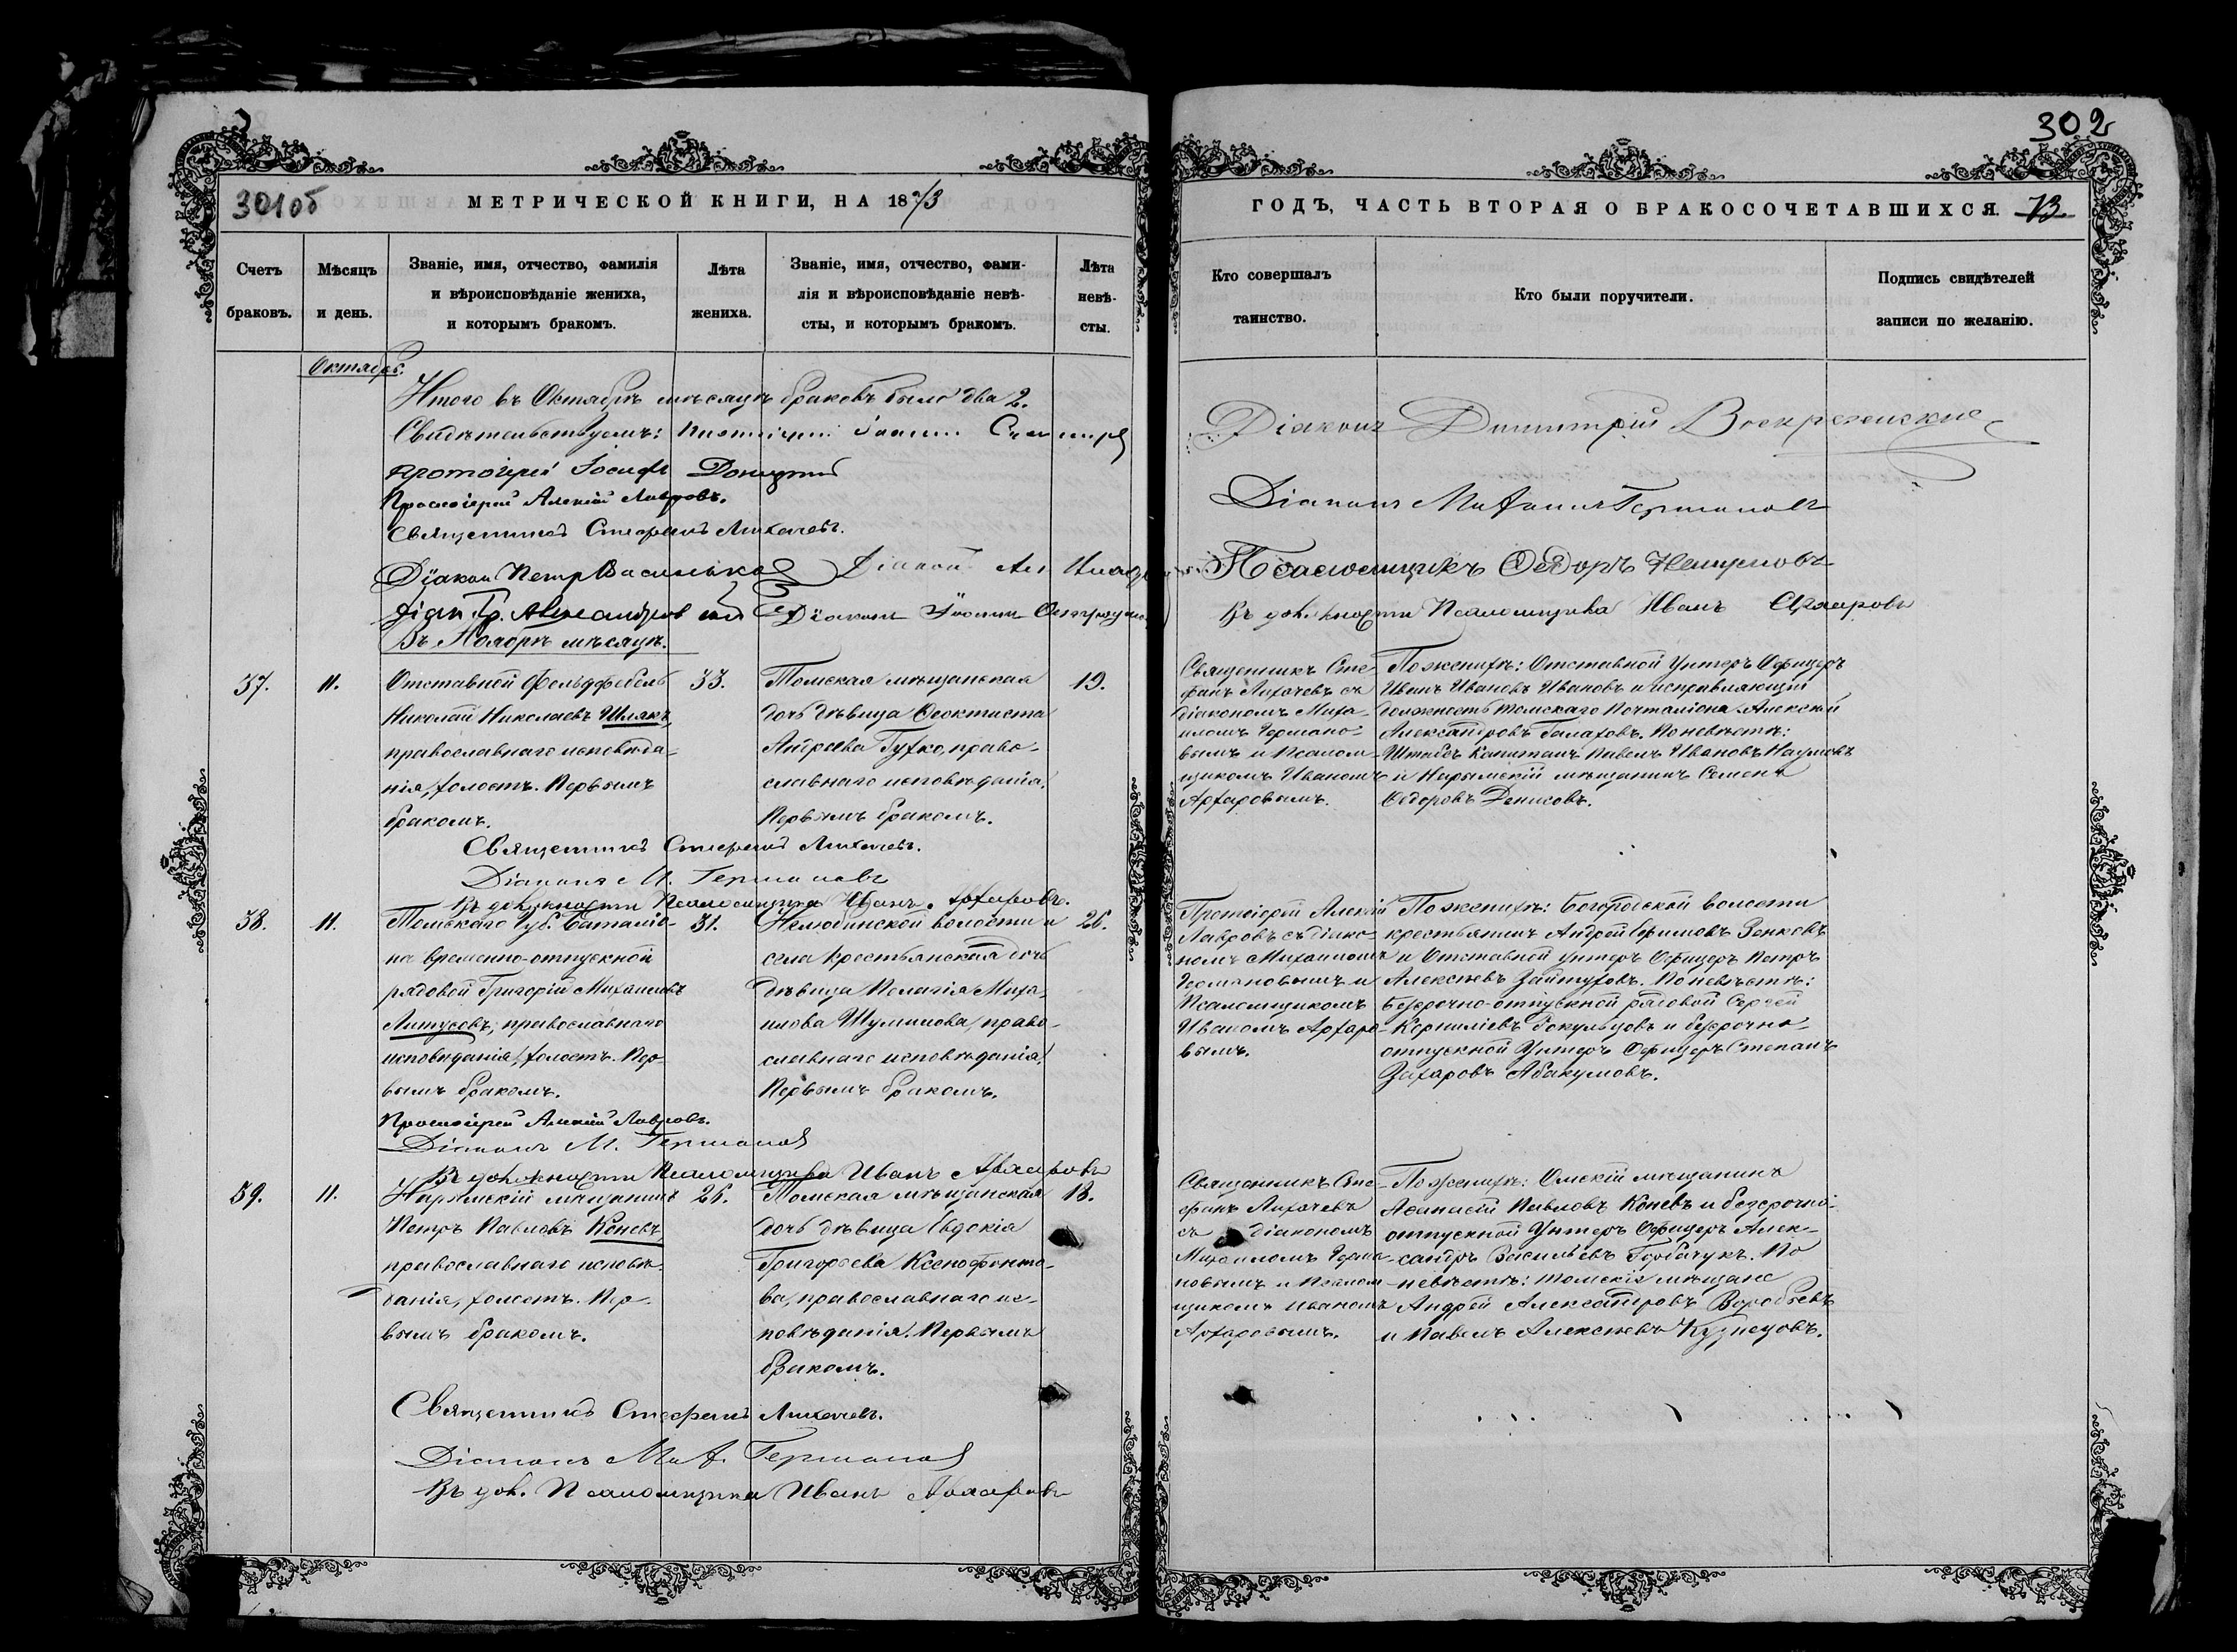 302
301об
МЕТРИЧЕСКОЙ КНИГИ, НА 1873
ГОДЪ, ЧАСТЬ ВТОРАЯ О БРАКОСОЧЕТАВШИХСЯ. 13.
Счетъ
браковъ.
Мѣсяцъ
и день.
Званіе, имя, отчество, фамилія
и вѣроисповѣданіе жениха,
и которымъ бракомъ.
Лѣта
жениха.
Званіе, имя, отчество, фами-
лія и вѣроисповѣданіе невѣ-
сты, и которымъ бракомъ.
Лѣта
невѣ-
сты.
Кто совершалъ
таинство.
Кто были поручители.
Подпись свидѣтелей
записи по желанію.
Октябрь.
Итого въ Октябрѣ мѣсяцѣ браковъ было два 2.
Свидѣтельствуемъ:
Протоіерей Іосифъ
Протоіерей Алексій Лавровъ.
Священникъ Стефанъ Лихачевъ.
Діаконъ Петръ Васильков
Діаконъ
Діаконъ Іоаннъ
Діаконъ Димитрій Воскресенский
Діаконъ Михаилъ Германовъ
Псаломщикъ Ѳедоръ
Въ должности Псаломщика Иванъ Архаровъ
Въ Ноябрѣ мѣсяцѣ.
37.
11.
Отставной Фельдфебель
Николай Николаевъ Шлякъ,
православнаго исповѣда-
нія, холостъ. Первымъ
бракомъ.
33.
Томская мѣщанская
дочь дѣвица Ѳеоктиста
Андреева Гутко, право-
славнаго исповѣданія.
Первымъ бракомъ.
19.
Священникъ Сте-
фанъ Лихачевъ съ
діакономъ Миха-
иломъ Германо-
вымъ и Псалом-
щикомъ Иваномъ
Архаровымъ.
По женихѣ: Отставной Унтеръ Офицеръ
Иванъ Ивановъ Ивановъ и исправляющій
должность томскаго Почталіона Алексѣй
Александровъ Галаховъ. По невѣстѣ:
Штабсъ Капитанъ Павелъ Ивановъ Наумовъ
и Нарымскій мѣщанинъ Семенъ
Ѳедоровъ Денисовъ.
Священникъ Стефанъ Лихачевъ.
Діаконъ М. Германовъ
Въ должности Псаломщика Иванъ Архаровъ.
38.
11.
Томскаго Губ. Баталіо-
на временно-отпускной
рядовой Григорій Михаиловъ
Литусовъ, православнаго
исповѣданія, холостъ. Пер-
вымъ бракомъ.
31.
Нелюбинской волости и
села Крестьянская дочь
дѣвица Пелагія Миха-
илова Шумилова, право-
славнаго исповѣданія.
Первымъ бракомъ.
26.
Протоіерей Алексій
Лавровъ съ діако-
номъ Михаиломъ
Германовымъ и
Псаломщикомъ
Иваномъ Архаро-
вымъ.
По женихѣ: Богородской волости
крестьянинъ Андрей Ефимовъ Зенковъ
и Отставной Унтеръ Офицеръ Петръ
Алексѣевъ Зайтуховъ. По невѣстѣ:
Безсрочно-отпускной рядовой Сергѣй
Корниліевъ и безсрочно-
отпускной Унтеръ Офицеръ Степанъ
Захаровъ Абакумовъ.
Протоіерей Алексій Лавровъ.
Діаконъ М. Германовъ
Въ должности Псаломщика Иванъ Архаровъ
39.
11.
Нарымскій мѣщанинъ
Петръ Павловъ Коневъ,
православнаго исповѣ-
данія, холостъ. Пер-
вымъ бракомъ.
26.
Томская мѣщанская
дочь дѣвица Евдокія
Григорьева Ксенофонто-
ва, православнаго ис-
повѣданія. Первымъ
бракомъ.
18.
Священникъ Сте-
фанъ Лихачевъ
съ діакономъ
Михаиломъ Герма-
новымъ и Псалом-
щикомъ Иваномъ
Архаровымъ.
По женихѣ: Омскій мѣщанинъ
Аѳанасій Павловъ Коневъ и безсрочно-
отпускной Унтеръ Офицеръ Алек-
сандръ Васильевъ Горбачукъ. По
невѣстѣ: томскіе мѣщане
Андрей Александровъ Воробьевъ
и Павелъ Алексѣевъ Кузнецовъ.
Священникъ Стефанъ Лихачевъ.
Діаконъ Мих. Германовъ
Въ дол. Псаломщика Иванъ Архаровъ